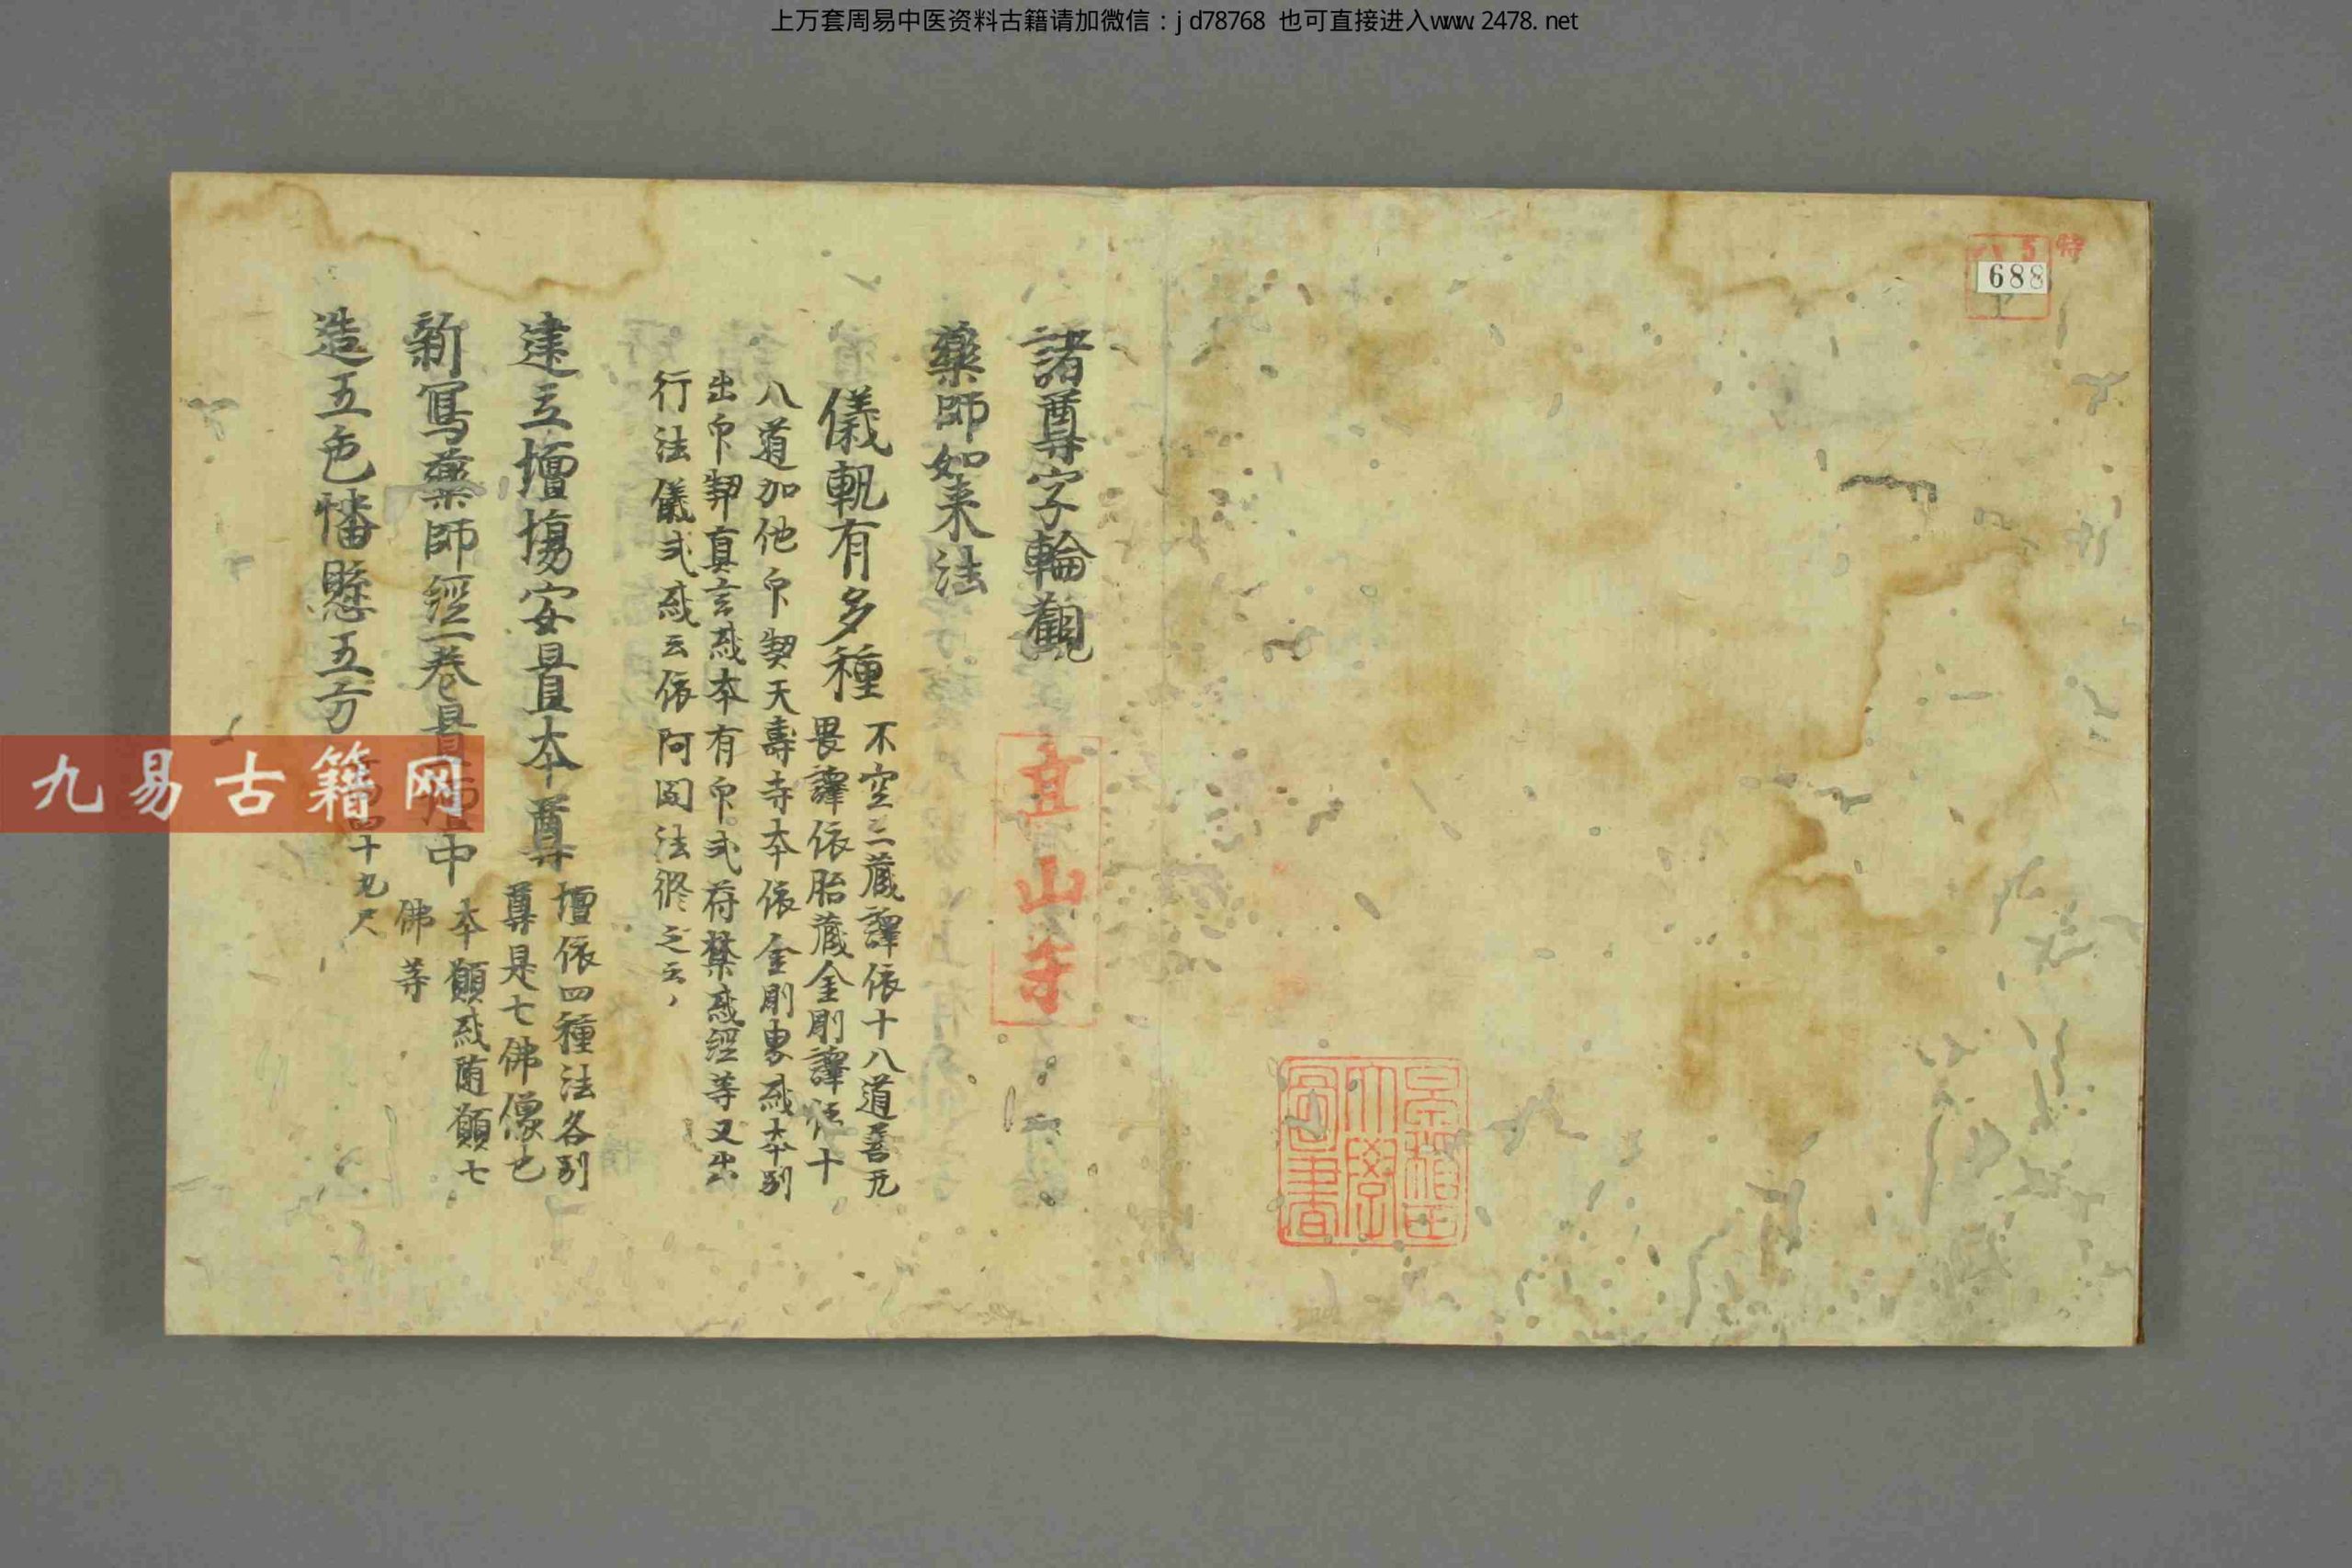 上万套周易中医资料古籍请加微信：jd78768 也可直接进入www.2478.net
特
5
688
高山寺
諸尊字輪觀
藥師如来法
儀軌有多種
不空三蔵譯依十八道善无
畏譯依胎蔵金剛譯依十
八道加他印契天壽寺本依金剛界或本別
出印契真言或本有印式符禁或經等又出
行法儀式或云依阿閦法修之云々
建立壇場安置本尊
壇依四種法各別
尊是七佛像也
新寫藥師經一卷置壇中
本願或随願七
佛等
造五色幡懸五方
四十九尺
九易古籍网